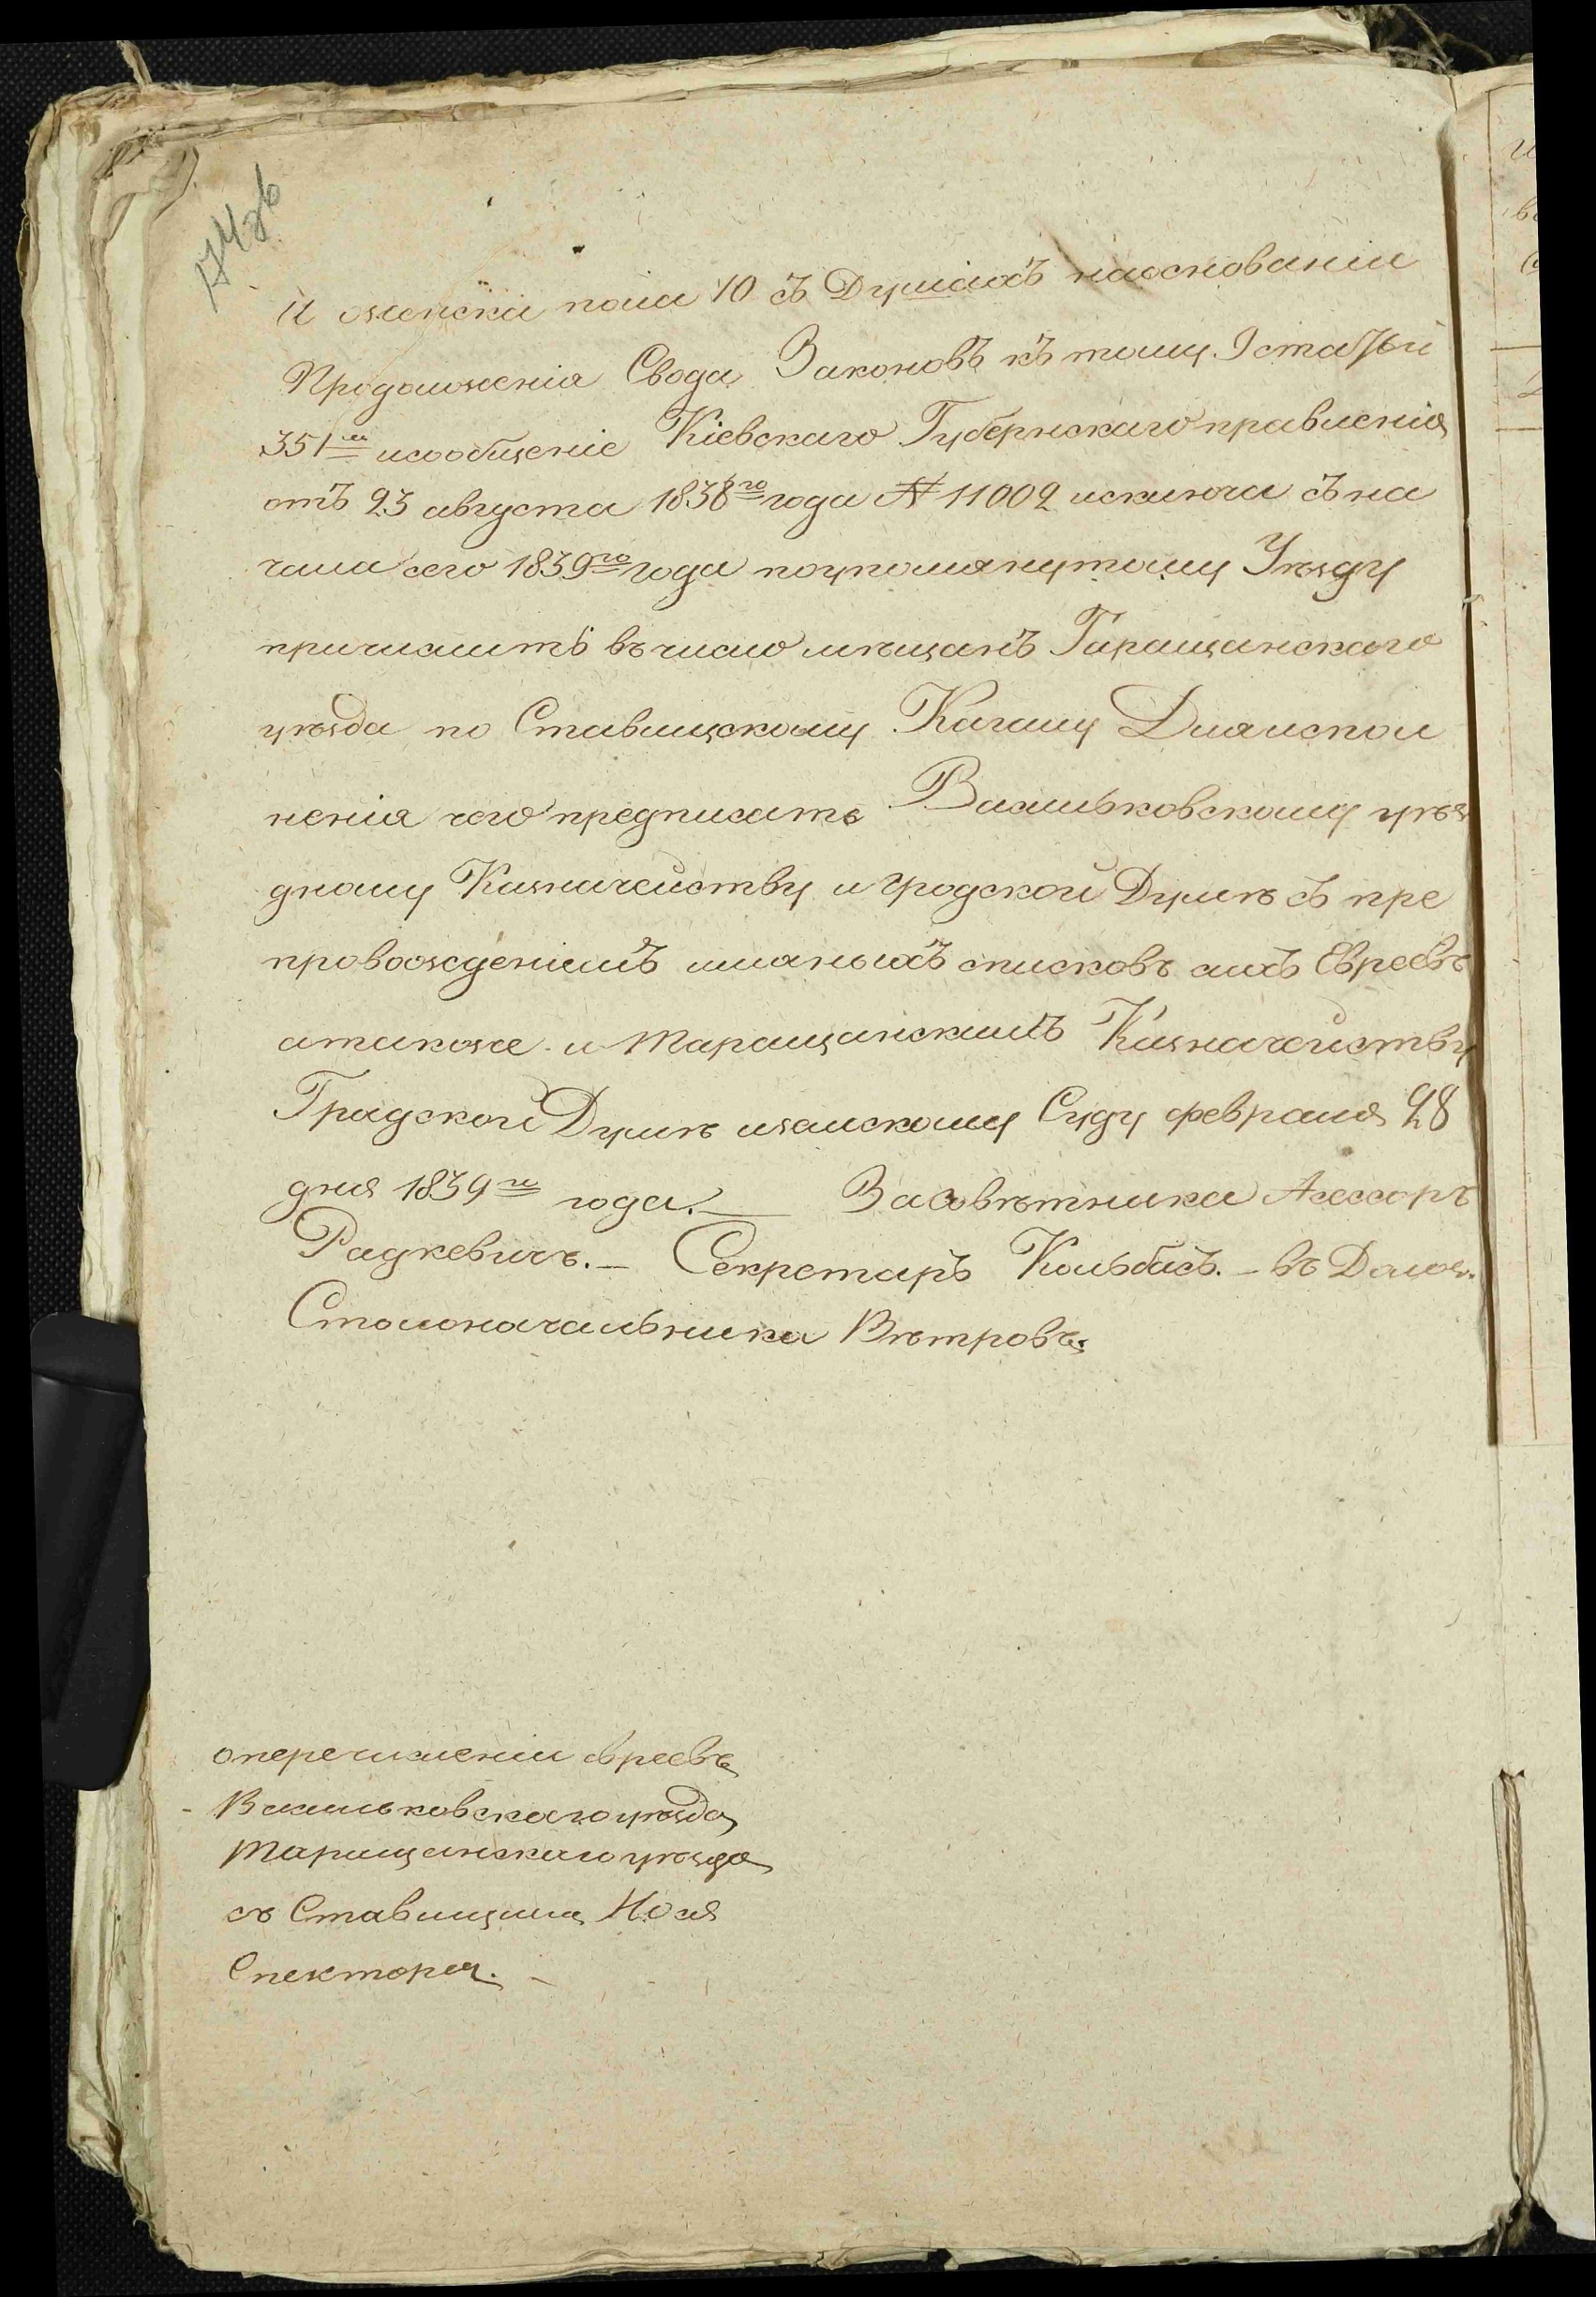 174 об
и женска пола 10 съ Душахъ наоснованіи
Продолженія Свода Законовъ къ тому статьи
351й исообщеніе Кіевскаго Губернскаго правленія
отъ 23 августа 1838го года № 11002 исключа съ на
чала сего 1839го года поупомянутому Уѣзду
причислить въ число мѣщанъ Таращанскаго
уѣзда по Ставищскому Кагалу Для испол
ненія чего предписать Васильковскому уѣз
дному Казначейству и городской Думѣ съ пре
провожденіемъ имяныхъ списковъ сихъ Евреевъ
атакоже и Таращанскимъ Казначейству
Градской Думѣ иземскому Суду февраля 28
дня 1839го года. — За Совѣтника Асессоръ
Радкевичъ. — Секретарь Кольбасъ. — въ Долж.
Столоначальника Вѣтровъ.
о перечисленіи евреевъ
Васильковскаго уѣзда
Таращанскаго уѣзда
съ Ставищима Нося
Спектора. —